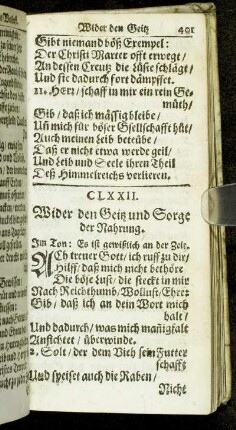 Wider den Geitz 491
Gibt niemand böß Exempel:
Der Christi Marter offt erwegt/
An dessen Creutz die Lüste schlägt/
Und sie dadurch fort dämpfft.
11. Herr/ schaff in mir ein rein Ge-
müth/
Gib/ daß ich mässig bleibe/
Uñ mich für böser Gsellschafft hüt/
Auch meinen Leib betrübe/
Daß er nicht etwa werde geil/
Und Leib und Seele ihren Theil
Deß Himmelreichs verlieren.
CLXXII.
Wider den Geitz und Sorge
der Nahrung.
Im Ton: Es ist gewißlich an der Zeit.
Ach treuer Gott/ ich ruff zu dir/
Hilff/ daß mich nicht bethöre
Die böse Lust/ die steckt in mir
Nach Reichthumb/ Wollust/ Ehre:
Gib/ daß ich an dein Wort mich
halt/
Und dadurch/ was mich mañigfalt
Anfichtet/ überwinde.
2. Solt/ der dem Vieh sein Futter
schafft
Und speiset auch die Raben/
Nicht